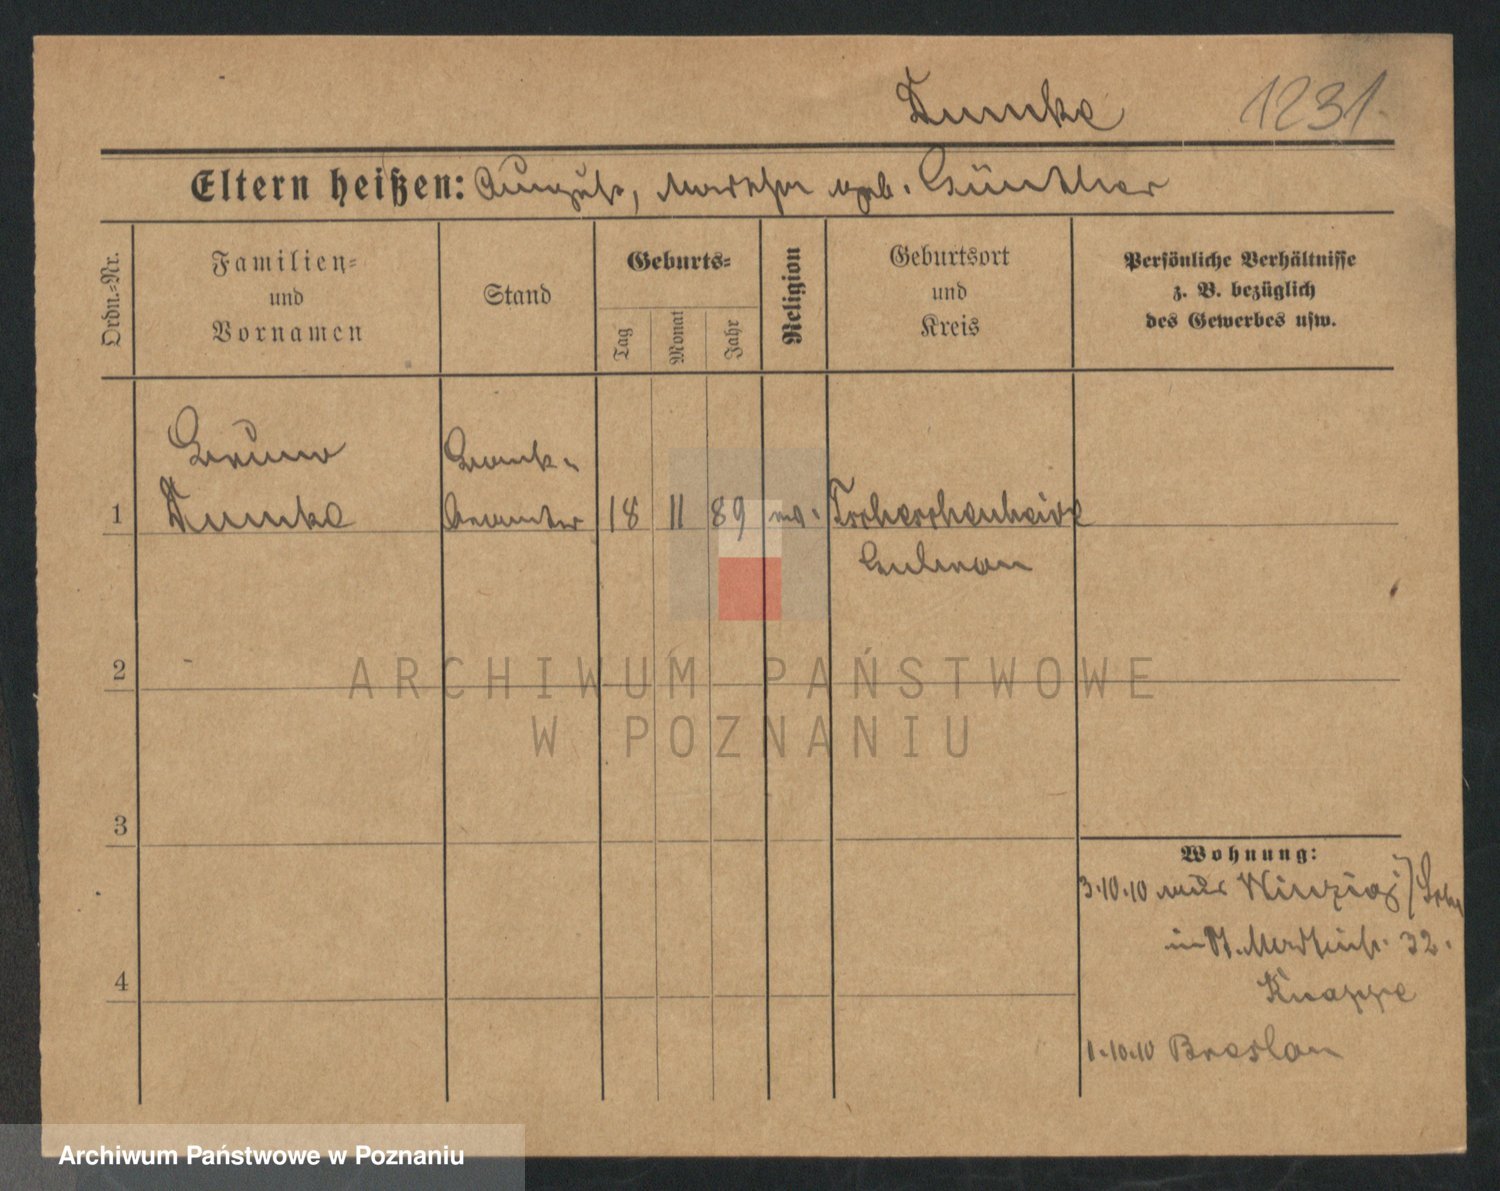 Dumke 1231.
Eltern heißen: August, Martha geb. Günther
Ordn.-Nr.
Familien-
und
Vornamen
Stand
Geburts-
Tag
Monat
Jahr
Religion
Geburtsort
und
Kreis
Persönliche Verhältnisse
z. B. bezüglich
des Gewerbes usw.
Bruno
Dumke
Bank-
beamter
1
18 11 89 ev.
Tscheschenheide
2
3
4
Wohnung:
3.10.10 aus Winzig
in St. Martinstr. 32.
Knappe
1.10.10 Breslau
ARCHIWUM PAŃSTWOWE
W POZNANIU
Archiwum Państwowe w Poznaniu